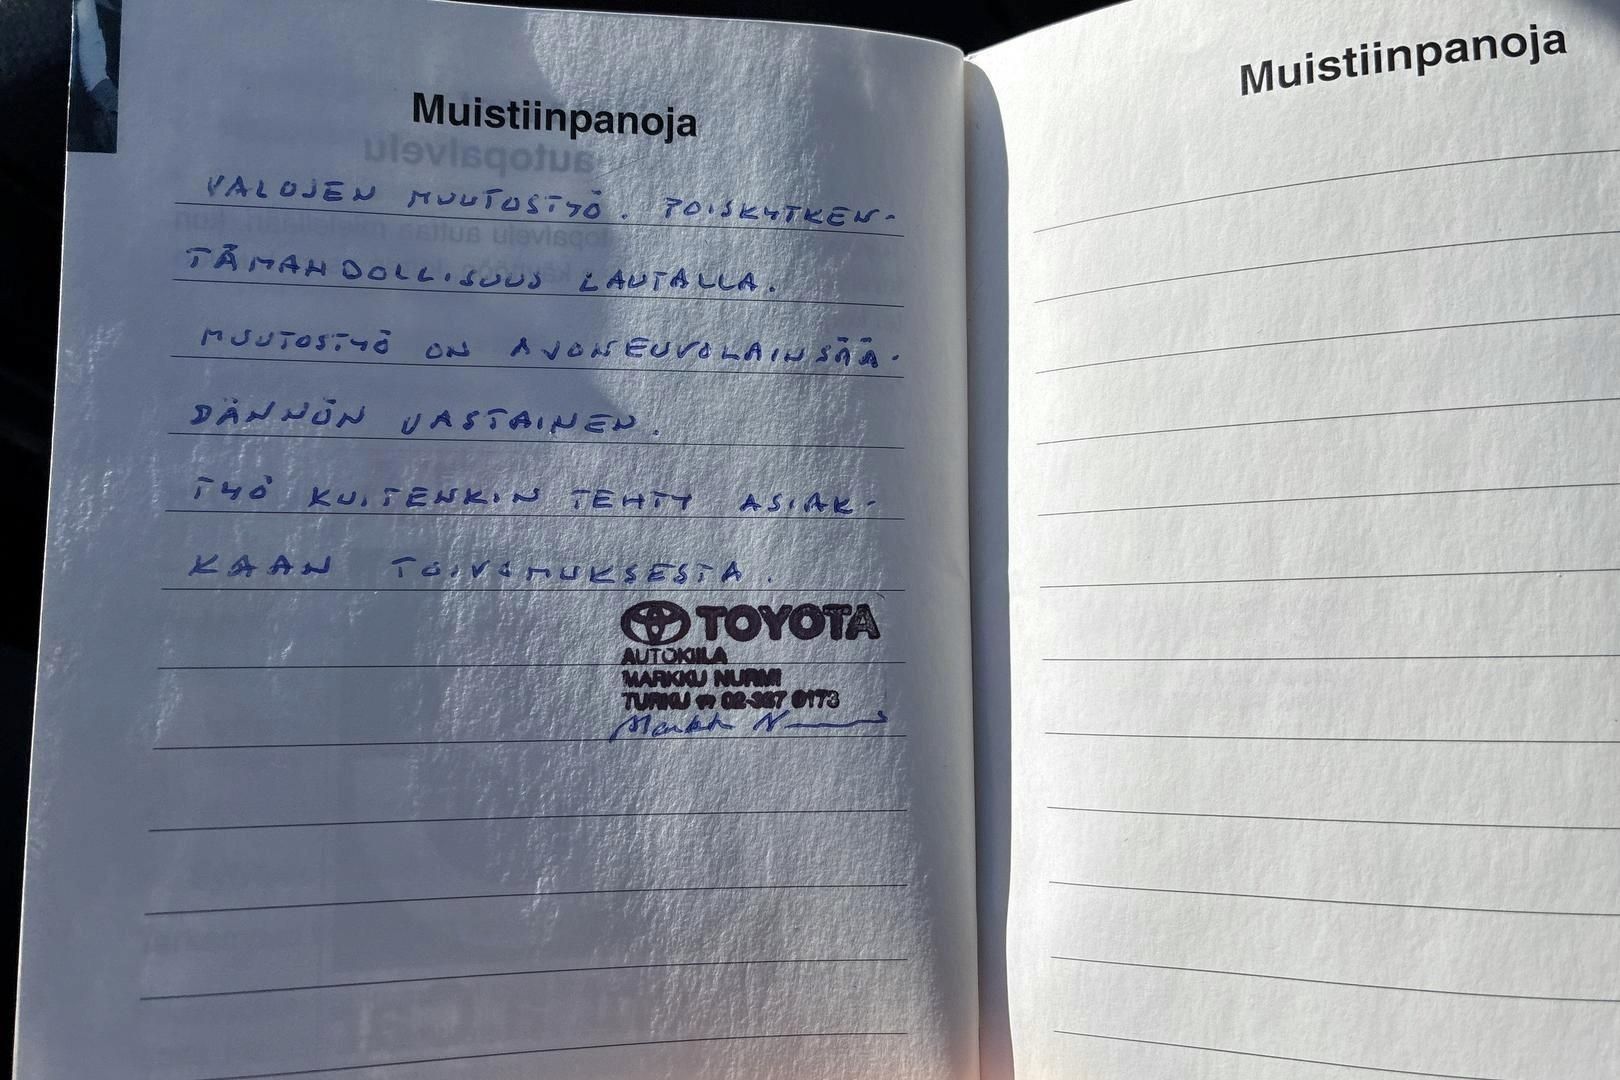 Muistiinpanoja
VALOJEN MUUTOSTYÖ. POISKYTKEN-
TÄMAHDOLLISUUS LAUTALLA.
MUUTOSTYÖ ON AJONEUVOLAINSÄÄ-
DÄNNÖN VASTAINEN.
TYÖ KUITENKIN TEHTY ASIAK-
KAAN TOIVOMUKSESTA.
TOYOTA
AUTOKIILA
MARKKU NURMI
TURKU ☎ 02-387 0173
Markku Nurmi
Muistiinpanoja